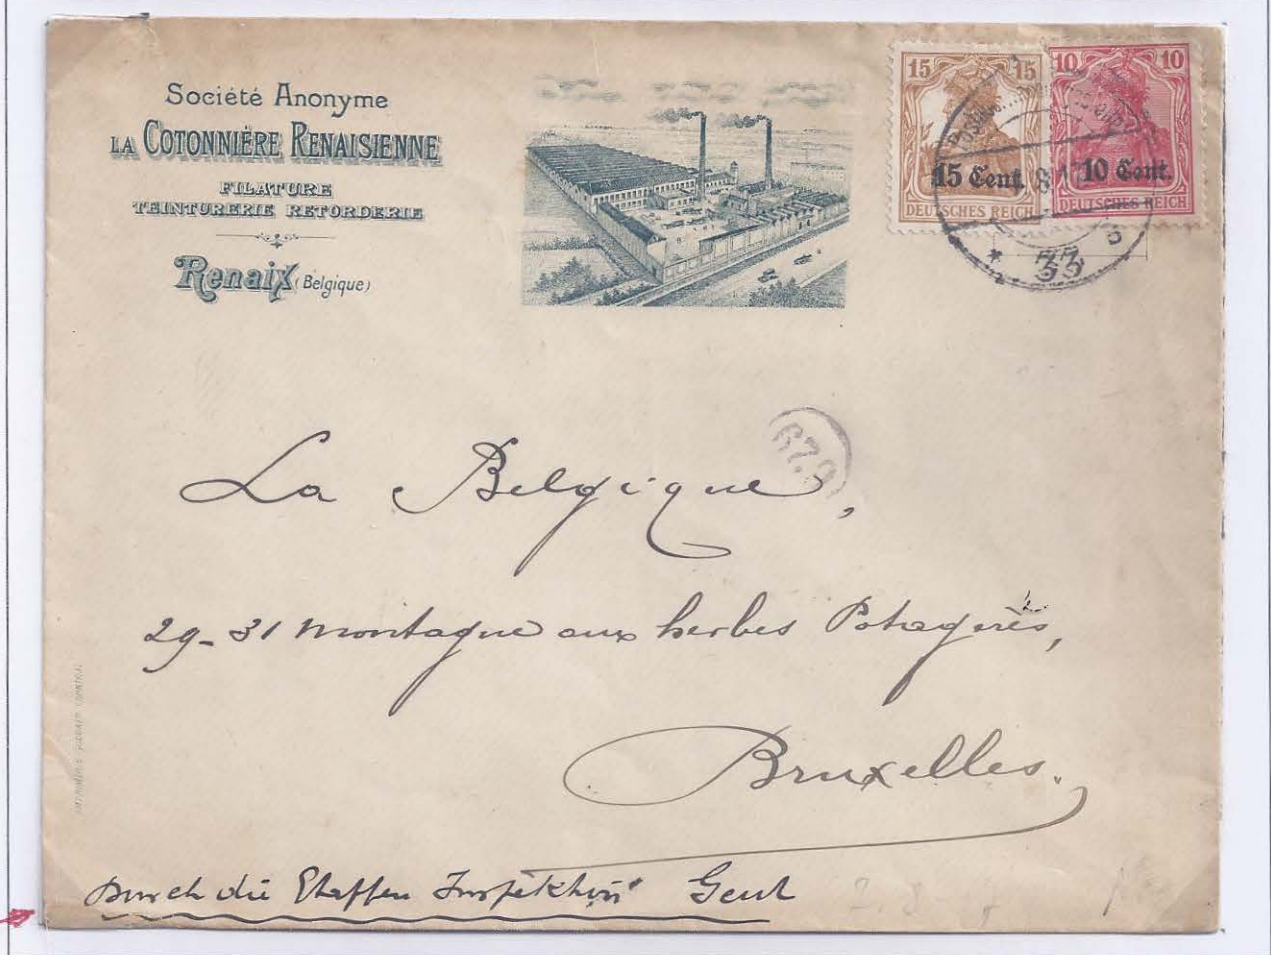 Société Anonyme
LA COTONNIÈRE RENAISIENNE
FILATURE
TEINTURERIE RETORDERIE
Renaix (Belgique)
15 15
15 Cent.
DEUTSCHES REICH
10 10
10 Cent.
DEUTSCHES REICH
8 17
* 33 b
67.9
La Belgique,
29-31 Montagne aux herbes Potagères,
Bruxelles.
Durch die Etappen Inspektion Gent